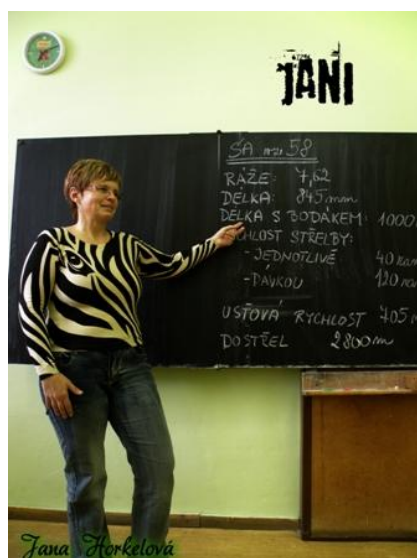 JANI
SA vz. 58
RÁŽE: 7,62
DÉLKA: 845 mm
DÉLKA S BODÁKEM: 1000
RYCHLOST STŘELBY:
-JEDNOTLIVĚ 40
-DÁVKOU 120
ÚSŤOVÁ RYCHLOST 705 m
DOSTŘEL 2800 m
Jana Horkelová